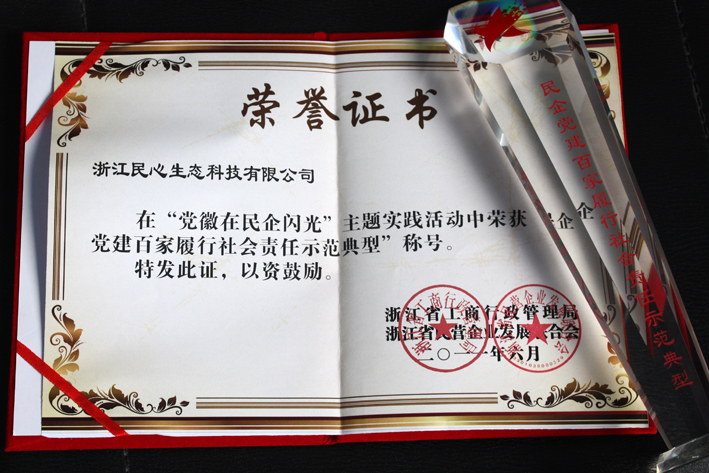 荣誉证书
浙江民心生态科技股有限公司
在“党徽在民企闪光”主题实践活动中荣获“民企
党建百家履行社会责任示范典型”称号。
特发此证，以资鼓励。
浙江省工商行政管理局
浙江省民营企业发展联合会
二〇一一年六月
民企党建百家履行社会责任示范典型